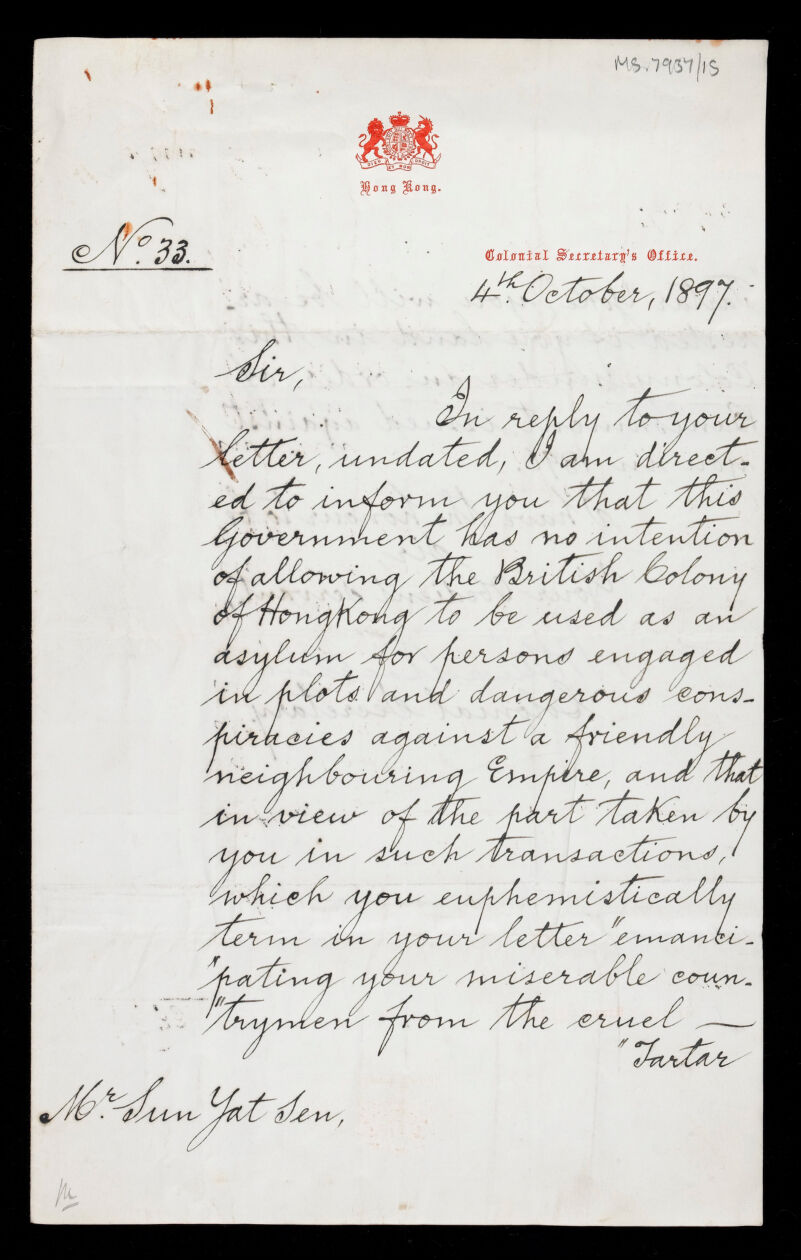 MS.7937/15
DIEU ET MON DROIT
Hong Kong.
No. 33.
Colonial Secretary's Office.
4th. October, 1897.
Sir,
In reply to your
letter, undated, I am direct-
ed to inform you that this
Government has no intention
of allowing the British Colony
of HongKong to be used as an
asylum for persons engaged
in plots and dangerous cons-
piracies against a friendly
neighbouring Empire, and that
in view of the part taken by
you in such transactions,
which you euphemistically
term in your letter "emanci-
"pating your miserable coun-
"trymen from the cruel —
"Tartar
Mr. Sun Yat Sen,